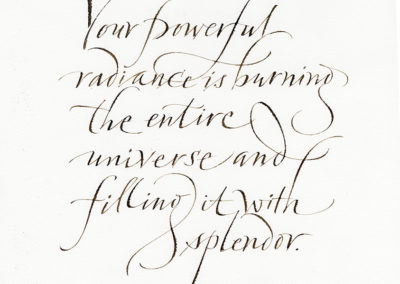 Your powerful
radiance is burning
the entire
universe and
filling it with
splendor.